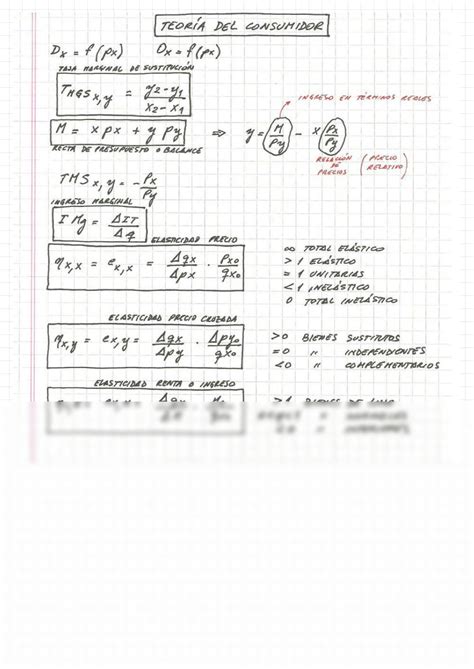 TEORÍA DEL CONSUMIDOR
Dx = f(px)   Ox = f(px)
TASA MARGINAL DE SUSTITUCIÓN
TMGS x,y = y2-y1 / x2-x1
INGRESO EN TÉRMINOS REALES
M = x px + y py ⇒ y = M/py - x px/py
RECTA DE PRESUPUESTO O BALANCE
RELACIÓN DE PRECIOS (PRECIO RELATIVO)
TMS x,y = - Px/Py
INGRESO MARGINAL
I Mg = ΔIT/Δq
ELASTICIDAD PRECIO
ηx,x = ex,x = Δqx/Δpx · px0/qx0
∞ TOTAL ELÁSTICO
>1 ELÁSTICO
=1 UNITARIAS
<1 INELÁSTICO
0 TOTAL INELÁSTICO
ELASTICIDAD PRECIO CRUZADA
ηx,y = ex,y = Δqx/Δpy · Δpy0/qx0
>0 BIENES SUSTITUTOS
=0 " INDEPENDIENTES
<0 " COMPLEMENTARIOS
ELASTICIDAD RENTA O INGRESO
>1 BIENES DE LUJO